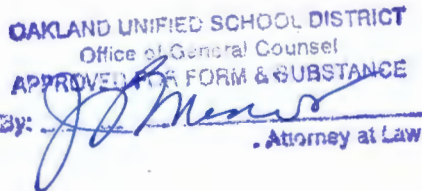 OAKLAND UNIFIED SCHOOL DISTRICT
Office of General Counsel
APPROVED FOR FORM & SUBSTANCE
By:
, Attorney at Law